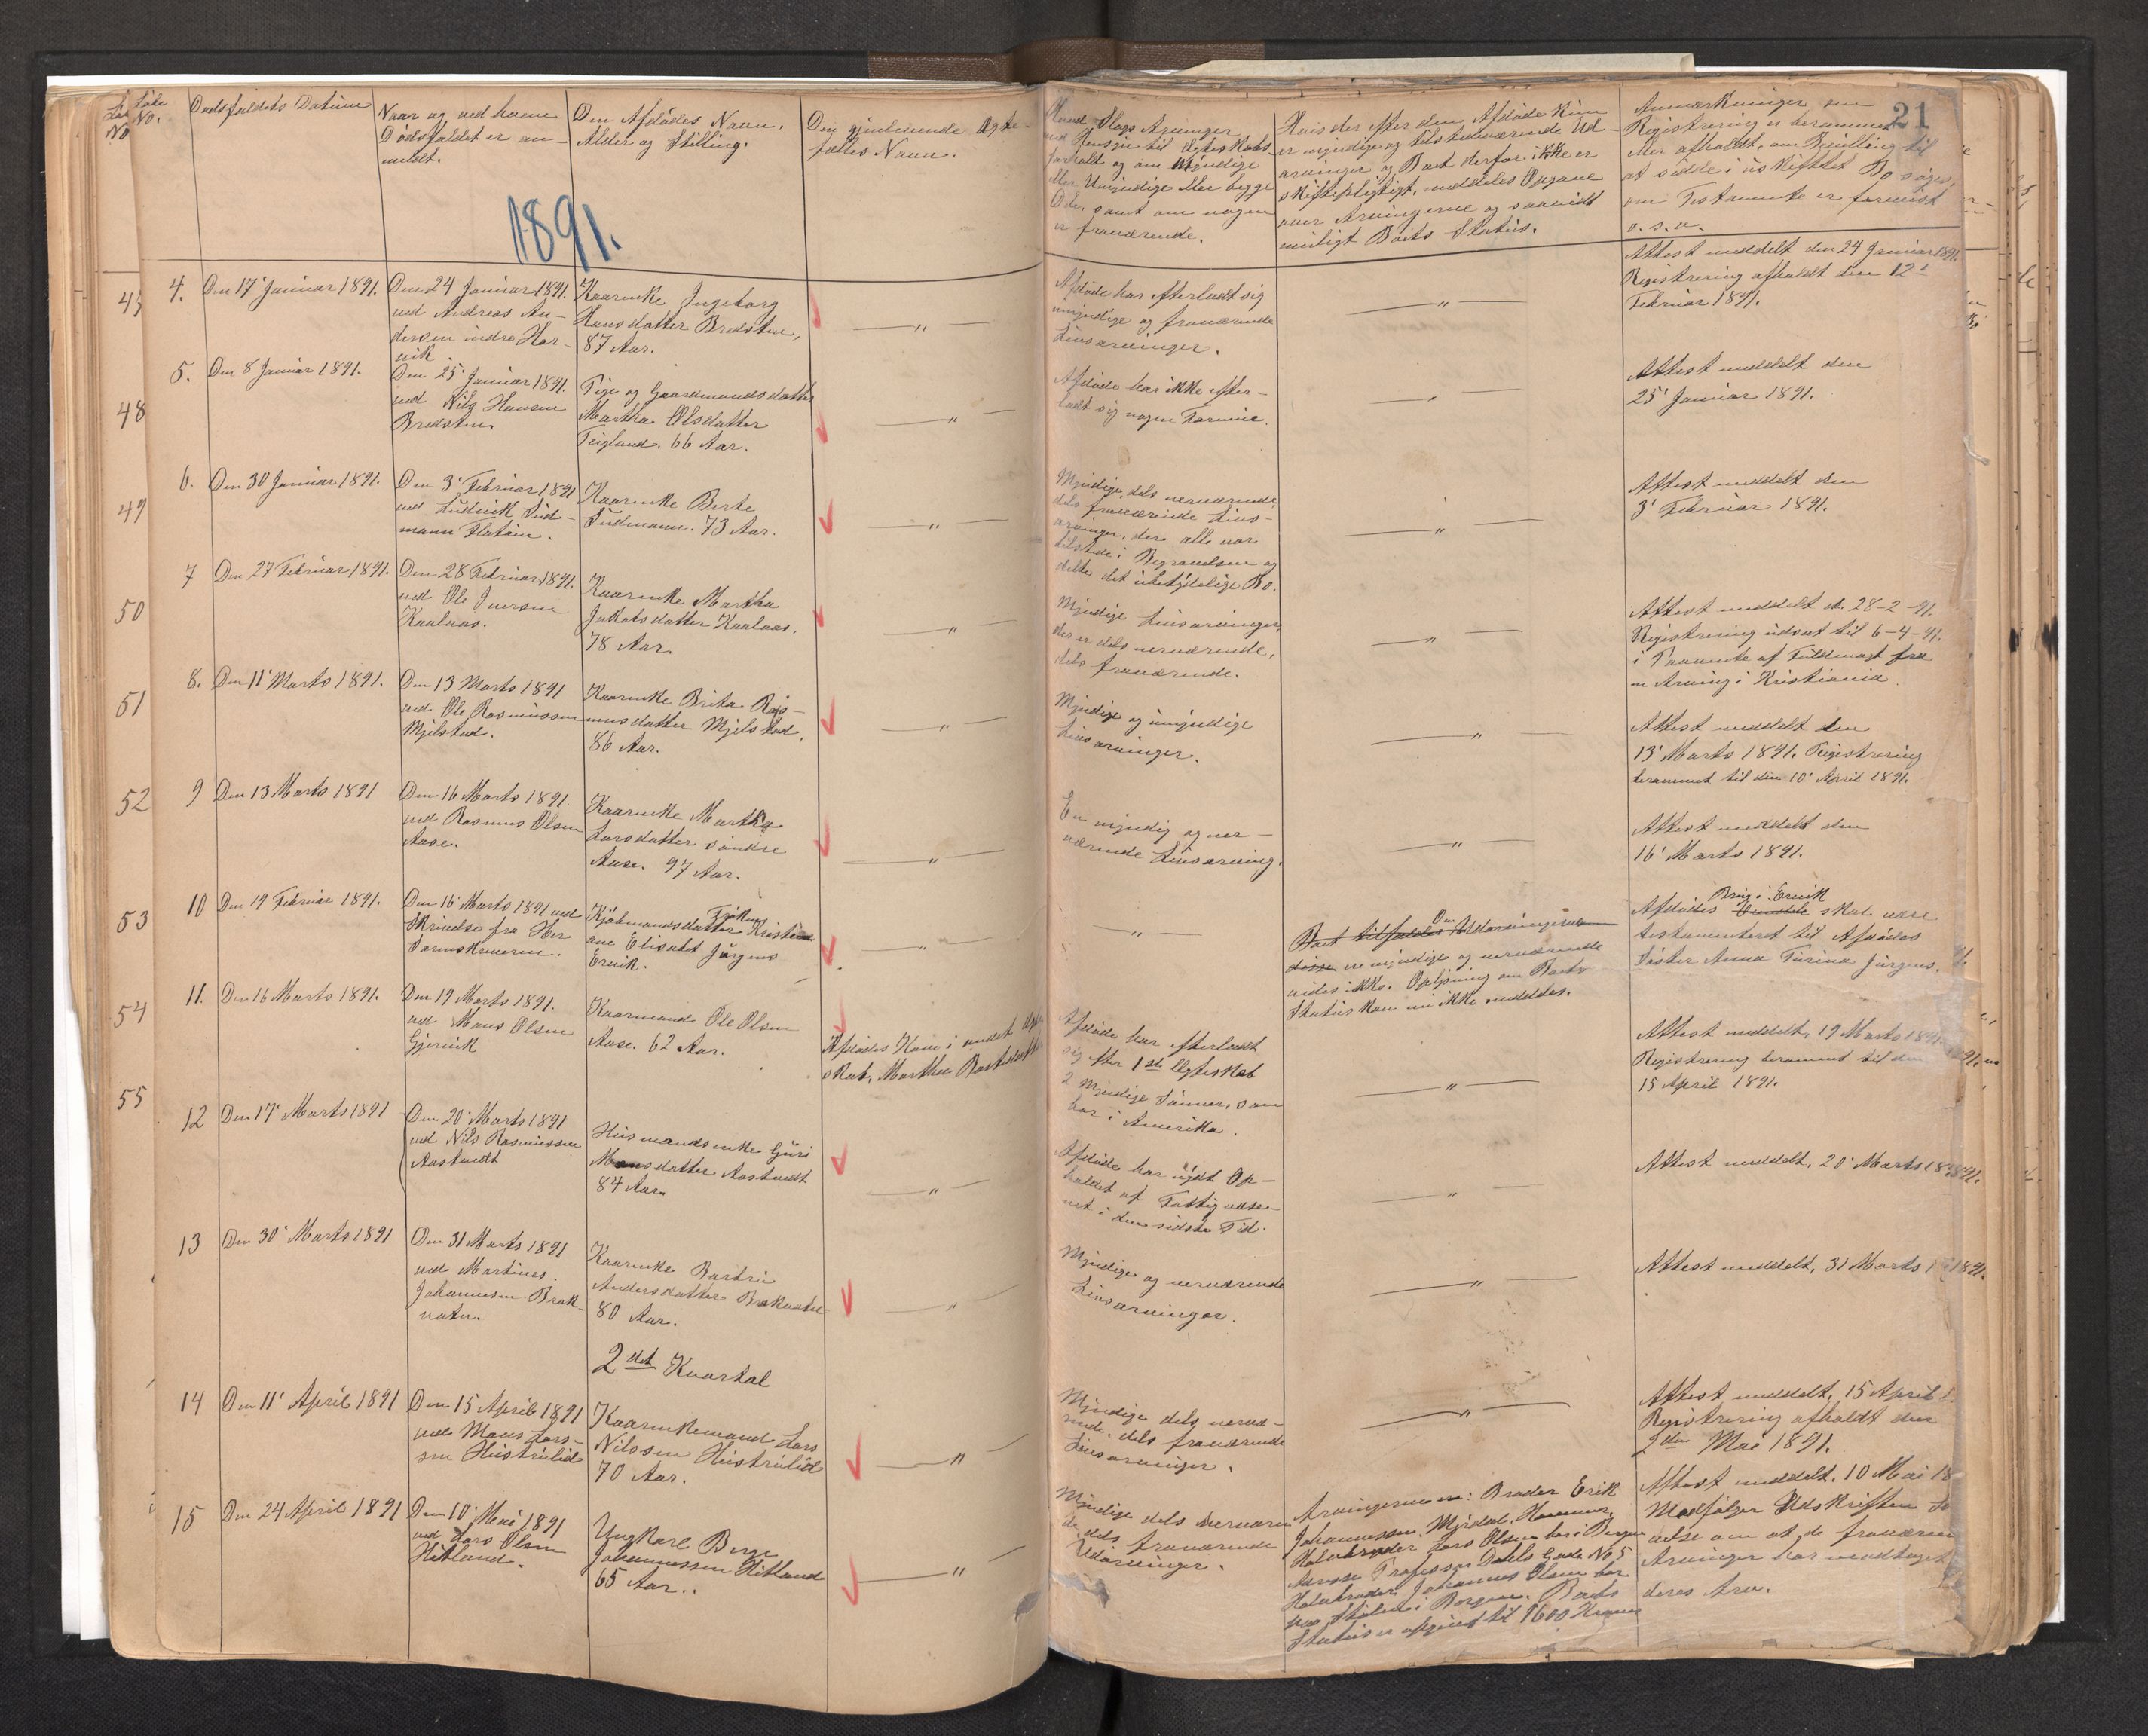 Løbe No.
Dødsfaldets Datum
Naar og ved hvem
Dødsfaldet er an-
meldt.
Den Afdødes Navn,
Alder og Stilling.
Den gjenlevende Ægte-
fælles Navn.
Hvad Slags Arvinger
med Hensyn til Ægteskabs-
forhold og om Myndige
eller Umyndige eller begge
Dele, samt om nogen
er fraværende.
Hvis der efter den Afdøde kun
er myndige og tilstedeværende Ud-
arvinger og Boet derfor ikke er
skiftepligtigt, meddeles Opgave
over Arvingerne og saavidt
muligt Boets Status.
Anmærkninger, om
Registrering er berammet
eller afholdt, om Bevilling til
at sidde i uskiftet Bo søges,
om Testamente er forevist
o. s. v.
21
1891.
4. Den 17' Januar 1891.
Den 24 Januar 1891.
ved Andreas An-
dersen indre Har-
vik.
Kaarenke Ingeborg
Hansdatter Bredsten,
87 Aar.
— " —
Afdøde har efterladt sig
myndige og fraværende
Livsarvinger.
— " —
Attest meddelt den 24 Januar 1891.
Registrering afholdt den 12'
Februar 1891.
5. Den 8 Januar 1891.
Den 25' Januar 1891.
ved Nils Hansen
Bredsten
Pige og Gaardmandsdatter
Martha Olsdatter
Teigland. 66 Aar.
— " —
Afdøde har ikke efter-
ladt sig nogen Formue.
— " —
Attest meddelt den
25' Januar 1891.
6. Den 30 Januar 1891.
Den 3' Februar 1891
ved Ludvik Sud-
mann
Kaarenke Berte
Sudmann. 73 Aar.
— " —
Myndige, dels nerværende,
dels fraværende Livs-
arvinger, der alle var
tilstede i Begravelsen og
delte det ubetydelige Bo.
— " —
Attest meddelt den
3' Februar 1891.
7 Den 27 Februar 1891.
Den 28 Februar 1891.
ved Ole Iversen
Kaalaas.
Kaarenke Martha
Jakobsdatter Kaalaas.
78 Aar
— " —
Myndige Livsarvinger,
der er dels nerværende,
dels fraværende.
— " —
Attest meddelt d. 28-2-91.
Registrering udsat til 6-4-91.
i Paavente af Fuldmagt fra
en Arving i Kristiania
8. Den 11' Marts 1891.
Den 13 Marts 1891
ved Ole Rasmussen
Mjelstad.
Kaarenke Brita Ras-
musdatter Mjelstad.
86 Aar.
— " —
Myndige og umyndige
Livsarvinger.
— " —
Attest meddelt den
13' Marts 1891. Registrering
berammet til den 10' April 1891.
9 Den 13 Marts 1891
Den 16 Marts 1891.
ved Rasmus Olsen
Aase.
Kaarenke Martha
Larsdatter søndre
Aase. 97 Aar.
— " —
En myndig og ner-
værende Livsarving.
— " —
Attest meddelt den
16' Marts 1891.
10 Den 19 Februar 1891.
Den 16' Marts 1891 ved
Skrivelse fra Hr
Sorenskriveren.
Frøken
Kjøbmandsdatter Kristi
ane Elisabet Jürgens
Ervik.
— " —
— " —
Om
Boet tilfalder Udarvingerne
disse ere myndige og nerværende
vides ikke. Oplysning om Boets
Status kan nu ikke meddeles.
Brug i Ervik
Afdødes skal være
testamenteret til Afdødes
Søster Anna Turina Jürgens.
11. Den 16 Marts 1891.
Den 19 Marts 1891.
ved Mons Olsen
Gjervik
Kaarmand Ole Olsen
Aase. 62 Aar.
Afdødes Kone i andet Ægte
skab, Martha
Afdøde har efterladt
sig efter 1ste Ægteskab
2 Myndige Sønner, som
bor i Amerika.
— " —
Attest meddelt, 19 Marts 1891.
Registrering berammet til den
15 April 1891.
12 Den 17' Marts 1891
Den 20' Marts 1891
ved Nils Rasmussen
Aastvedt
Husmandsenke Guri
Monsdatter Aastvedt
84 Aar
— " —
Afdøde har nydt Op-
holdet af Fattigvæse-
net i den sidste Tid.
— " —
Attest meddelt, 20' Marts 1891.
13 Den 30' Marts 1891
Den 31 Marts 1891
ved Martines
Johannesen Brak-
vatn.
Kaarenke Bastrin
Andersdatter Brakvatn
80 Aar.
— " —
Myndige og nerværende
Livsarvinger.
— " —
Attest meddelt, 31 Marts 1891.
2det Kvartal
14 Den 11' April 1891
Den 15 April 1891
ved Mons Lars-
sen Hustrulid
Kaarenkemand Lars
Nilssen Hustrulid
70 Aar.
— " —
Myndige dels nervæ-
rende, dels fraværende
Livsarvinger.
— " —
Attest meddelt, 15 April
Registrering afholdt den
2den Mai 1891.
15 Den 24 April 1891
Den 10' Mai 1891
ved Lars Olsen
Hitland.
Ungkarl Berge
Johannessen Hitland
65 Aar..
— " —
Myndige dels nerværen
de, dels fraværende
Udarvinger.
Arvingerne er: Broder Erik
Johannessen, Mjrdal, Hammer,
Halvbroder Lars Olsen bor i Bergen
Adresse Professor Dahls Gade No 5
Halvbroder, Johannes Olsen bor
paa Stølen i Bergen. Boets
Status er opgivet til 1600 Kroner
Attest meddelt. 10 Mai 18
Medfølger Udskriften
else om at de fraværen
Arvinger har modtaget
deres Arv.
45
48
49
50
51
52
53
54
55